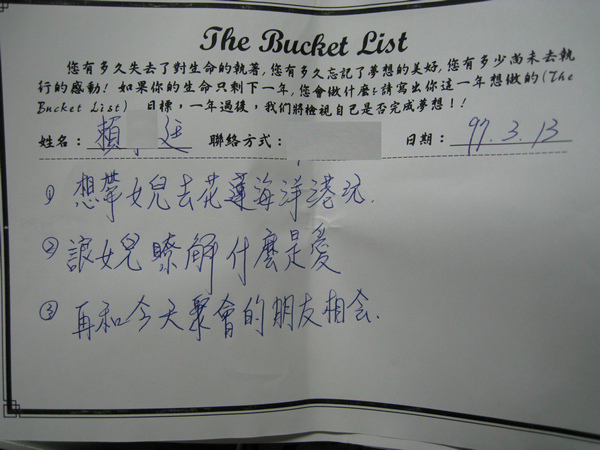 The Bucket List
您有多久失去了對生命的執著,您有多久忘記了夢想的美好,您有多少尚未去執
行的感動! 如果你的生命只剩下一年,您會做什麼?請寫出你這一年想做的(The
Bucket List) 目標，一年過後，我們將檢視自己是否完成夢想!!
姓名：賴 廷 聯絡方式： 日期：97.3.13
① 想帶女兒去花蓮海洋港玩.
② 讓女兒瞭解什麼是愛
③ 再和今天聚會的朋友相会.